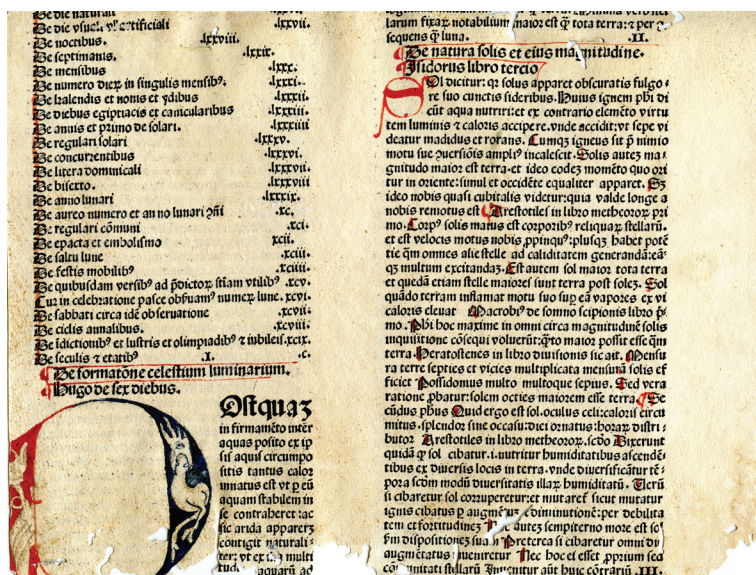 De die naturali
De die vsuali vl' artificiali
De noctibus. .lxxviii.
De septimanis. .lxxix.
De mensibus .lxxx.
De numero dieꝝ in singulis mensibꝰ. .lxxxi.
De kalendis et nonis et ydibus .lxxxii
De diebus egiptiacis et canicularibus .lxxxiii
De annis et primo de solari. .lxxxiiii
De regulari solari .lxxxv.
De concurrentibus .lxxxvi.
De litera dominicali .lxxxvii
De bisexto. .lxxxviii
De anno lunari .lxxxix.
De aureo numero et anno lunari .xc.
De regulari cōmuni .xci.
De epacta et embolismo .xcii.
De saltu lune .xciii
De festis mobilibꝰ .xciiii.
De quibusdam versibꝰ ad p̄dictoꝝ sīam vtilibꝰ .xcv.
Cur in celebratione pasce obseruam' numeꝝ lune. .xcvi.
De sabbati circa idē obseruatione .xcvii.
De ciclis annalibus. .xcviii.
De idictionibꝰ et lustris et olimpiadibꝰ ⁊ iubileis .xcix.
De seculis ⁊ etatibꝰ .I. .c.
De formatōne celestium luminarium.
Hugo de sex diebus.
Ostquaꝫ
in firmamēto inter
aquas posito ex ip
sis aqui circumpo
sitis tantus calor
innatus est vt ꝑ eū
aquam stabilem in
se contraheret: ac
sic arida appareꝫ
contigit naturali
ter: vt ex multi
tud aquarū ad
larum fixaꝝ notabilium maior est ꝙ̄ tota terra: ⁊ per
sequens ꝙ̄ luna. .II.
De natura solis et eius magnitudine.
Isidorus libro tercio
Sol dicitur: qꝛ solus apparet obscuratis fulgo
re suo cunctis sideribus. Huius ignem pħi di
cūt aqua nutriri: et ex contrario elemēto virtu
tem luminis ⁊ caloris accipere. vnde accidit: vt sepe vi
deatur madidus et rorans. Cumqꝫ igneus sit p̄ nimio
motu sue ꝯuersiōis ampliꝰ incalescit. Solis auteꝫ ma
gnitudo maior est terra. et ideo codeꝫ momēto quo ori
tur in oriente: simul et occidēte equaliter apparet. Sꝫ
ideo nobis quasi cubitalis videtur: quia valde longe a
nobis remotus est Arestotiles in libro metheoroꝝ pri
mo. Corpꝰ solis maius est corporibꝰ reliquaꝝ stellarū.
et est velocis motus nobis ꝓpinquꝰ: plusqꝫ habet potē
tie ꝙ̄ omnes alie stelle ad caliditatem generandā: ea
qꝫ multum excitandaꝫ. Est autem sol maior tota terra
et quedā etiam stelle maiores sunt terra post soleꝫ. Sol
quādo terram inflamat motu suo sup eā vapores ex vi
caloris eleuat Macrobiꝰ de somno scipionis libro pͥ
mo. Pħi hoc maxime in omni circa magnitudinē solis
inquisitione cōsequi voluerūt: ꝙ̄to maior possit esse ꝙ̄
terra. Heratostenes in libro diuisionis sic ait. Mensu
ra terre septies et vicies multiplicata mensurā solis ef
ficiet Possidomus multo multoque sepius. Sed vera
ratione ꝓbatur: solem octies maiorem esse terra. Se
cūdus pħus Quid ergo est sol. oculus celi: caloris circu
mitus. splendor sine occasu: diei ornatus: horaꝝ distri
butor Arestotiles in libro metheoroꝝ. scdo Dixerunt
quidā ꝙ sol cibatur. i. nutritur humiditatibus ascendē
tibus ex diuersis locis in terra. vnde diuersificātur tē
pora scdm modū diuersitatis illaꝝ humiditatū. Uerū
si cibaretur sol corrumperetur: et mutaret' sicut mutatur
ignis cibatus ꝑ augmētū ⁊ diminutionē: per debilita
tem et fortitudineꝫ auteꝫ sempiterno more est sol
bm dispositioneꝫ suā Preterea si cibaretur omni di
augmētatus inueniretur Nec hoc ei esset ꝓprium sed
stellarū Inuenitur aūt huic cōtrariū .III.